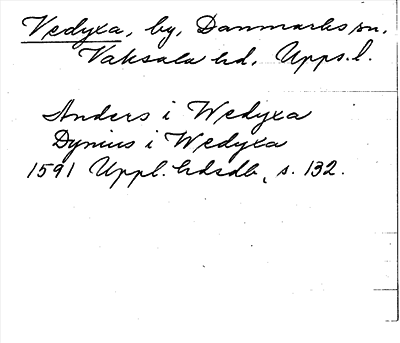 Vedyxa, by, Danmarks sn,
Vaksala hd, Upps. l.
Anders i Wedyxa
Dynius i Wedyxa
1591 Uppl. hdsdb, s. 132.